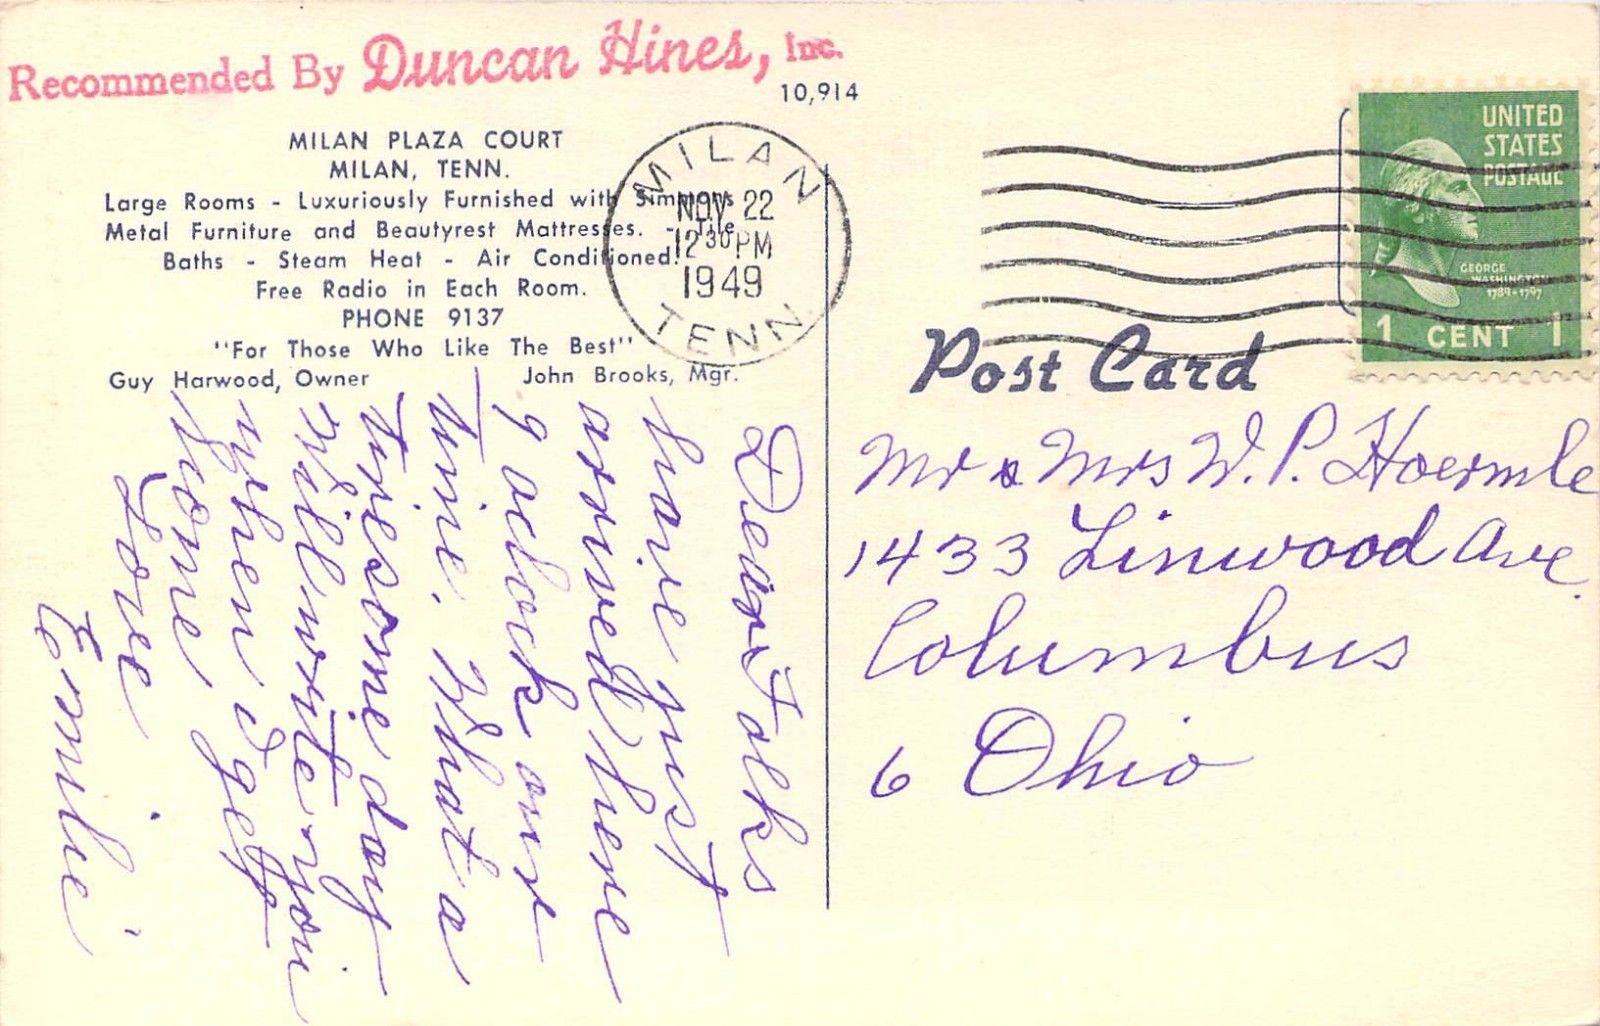 Recommended By Duncan Hines, Inc.
10,914
MILAN PLAZA COURT
MILAN, TENN.
Large Rooms - Luxuriously Furnished with Simmons
Metal Furniture and Beautyrest Mattresses. - Tile
Baths - Steam Heat - Air Conditioned.
Free Radio in Each Room.
PHONE 9137
"For Those Who Like The Best"
Guy Harwood, Owner John Brooks, Mgr.
MILAN
NOV 22
12 30 PM
1949
TENN.
UNITED
STATES
POSTAGE
GEORGE
WASHINGTON
1789-1797
1 CENT 1
Post Card
Dear Folks
have just
arrived here
9 oclock our
time. What a
tiresome day
Will write you
when I get
home
Love
Emilie
Mr & Mrs W. P. Hoermle
1433 Linwood Ave.
Columbus
6 Ohio